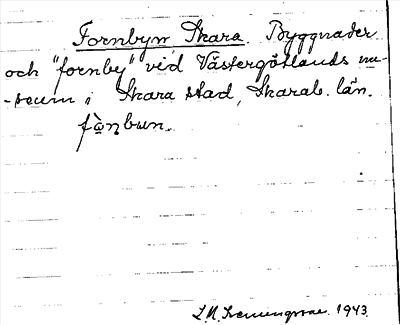 Fornbyn Skara. Byggnader
och "fornby" vid Västergötlands mu-
-seum i Skara stad, Skarab. län.
fò̠̖ŋbun.
1943